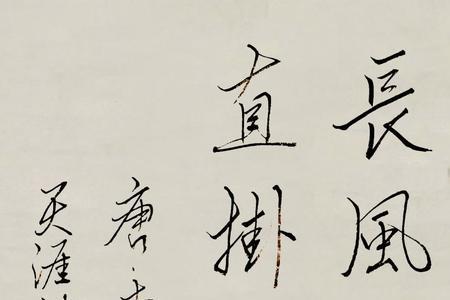 長風
直掛
唐
天涯